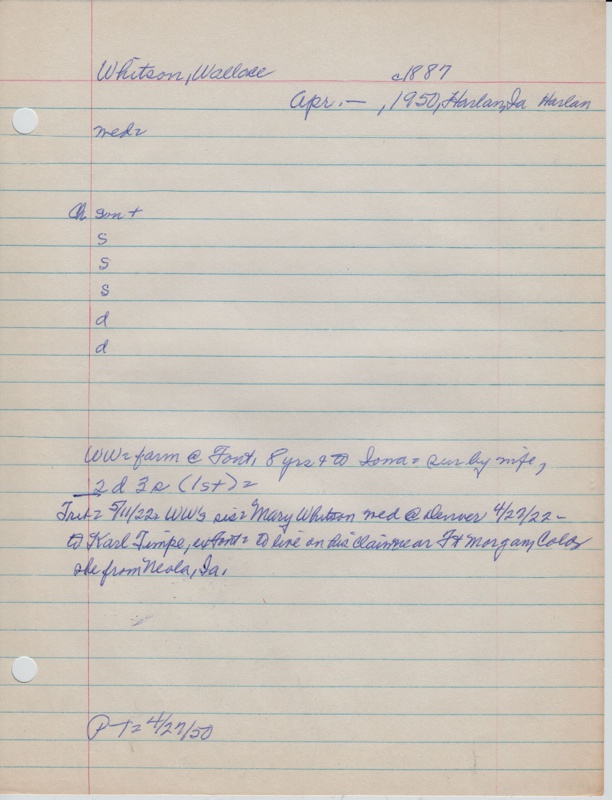 Whitson, Wallace c1887
Apr. –, 1950, Harlan, Ia Harlan
med=
Ch son +
s
s
s
d
d
WW= farm @ Font. 8 yrs & to Iowa = sur by wife,
2 d 3 s (1s+) =
5/11/22= WW's sis= Mary Whitson wed @ Denver 4/27/22 –
to Karl Timpe, = to live on his claim near Ft Morgan, Colo,
she from Neola, Ia.
P-T= 4/27/50